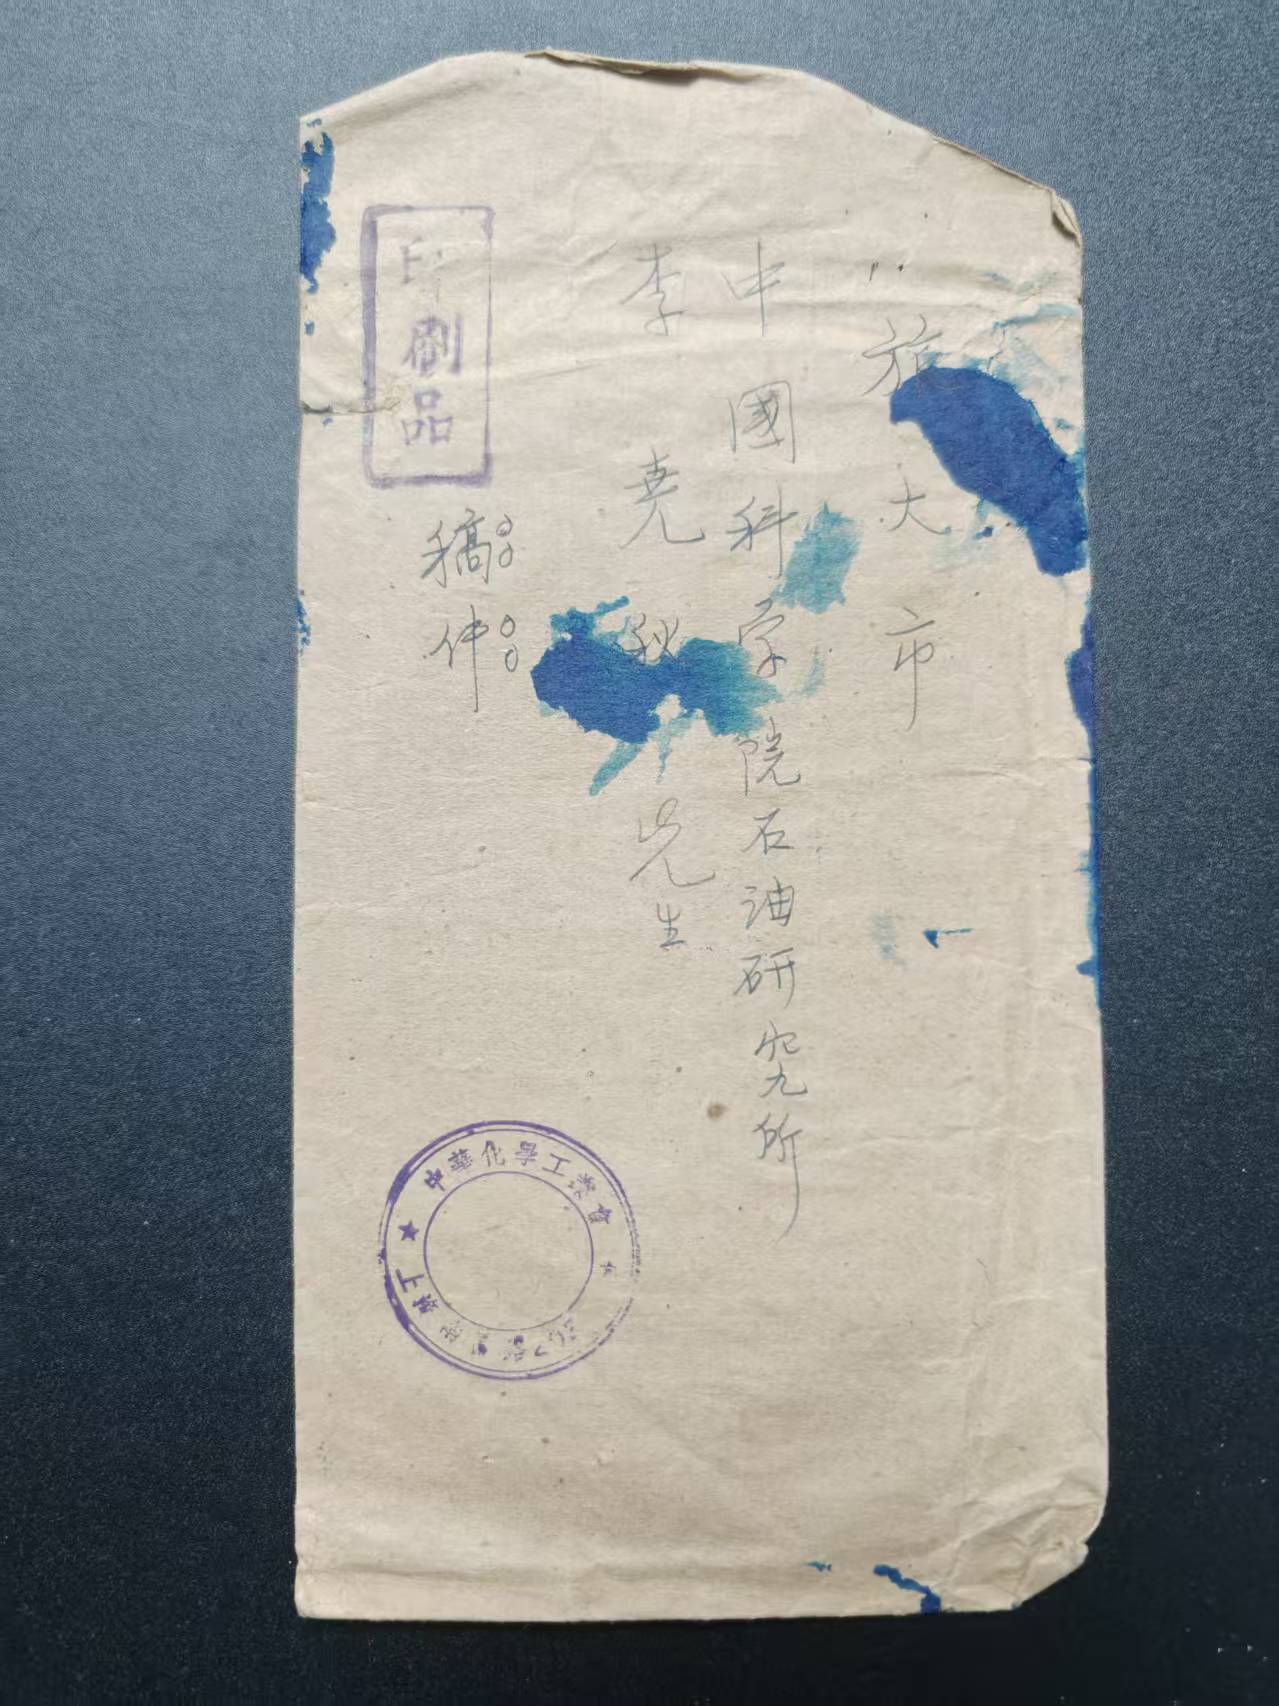 旅大市
中國科学院石油研究所
李堯
先生
稿件
印刷品
中華化學工業會